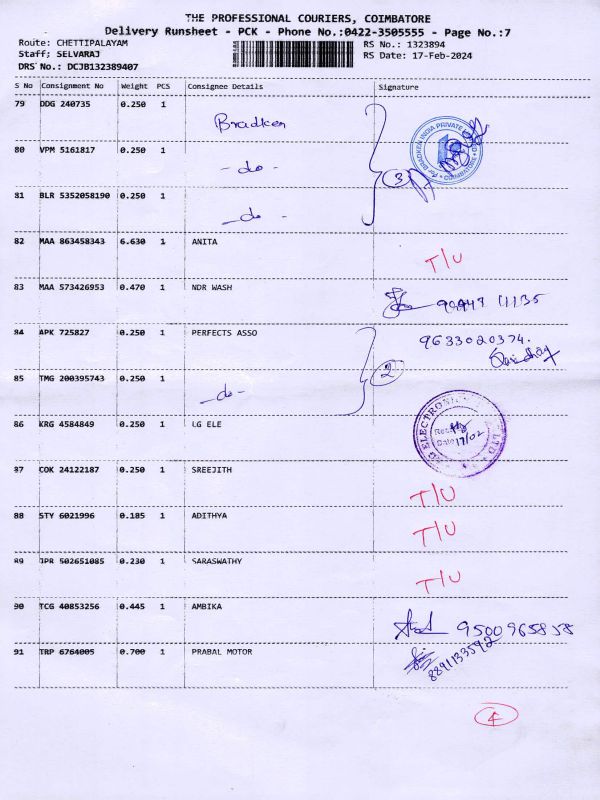 THE PROFESSIONAL COURIERS, COIMBATORE
Delivery Runsheet - PCK - Phone No.:0422-3505555 - Page No.:7
Route: CHETTIPALAYAM RS No.: 1323894
Staff; SELVARAJ RS Date: 17-Feb-2024
DRS No.: DCJB132389407
S No Consignment No Weight PCS Consignee Details Signature
79 DDG 240735 0.250 1 Bradken
80 VPM 5161817 0.250 1 -do-
3
81 BLR 5352058190 0.250 1 -do-
82 MAA 863458343 6.630 1 ANITA T/U
83 MAA 573426953 0.470 1 NDR WASH
84 APK 725827 0.250 1 PERFECTS ASSO 9633020374.
2
85 TMG 200395743 0.250 1 -do-
86 KRG 4584849 0.250 1 LG ELE 17/02
87 COK 24122187 0.250 1 SREEJITH T/U
88 STY 6021996 0.185 1 ADITHYA T/U
89 JPR 502651085 0.230 1 SARASWATHY T/U
90 TCG 40853256 0.445 1 AMBIKA
91 TRP 6764005 0.700 1 PRABAL MOTOR 8891133592
4